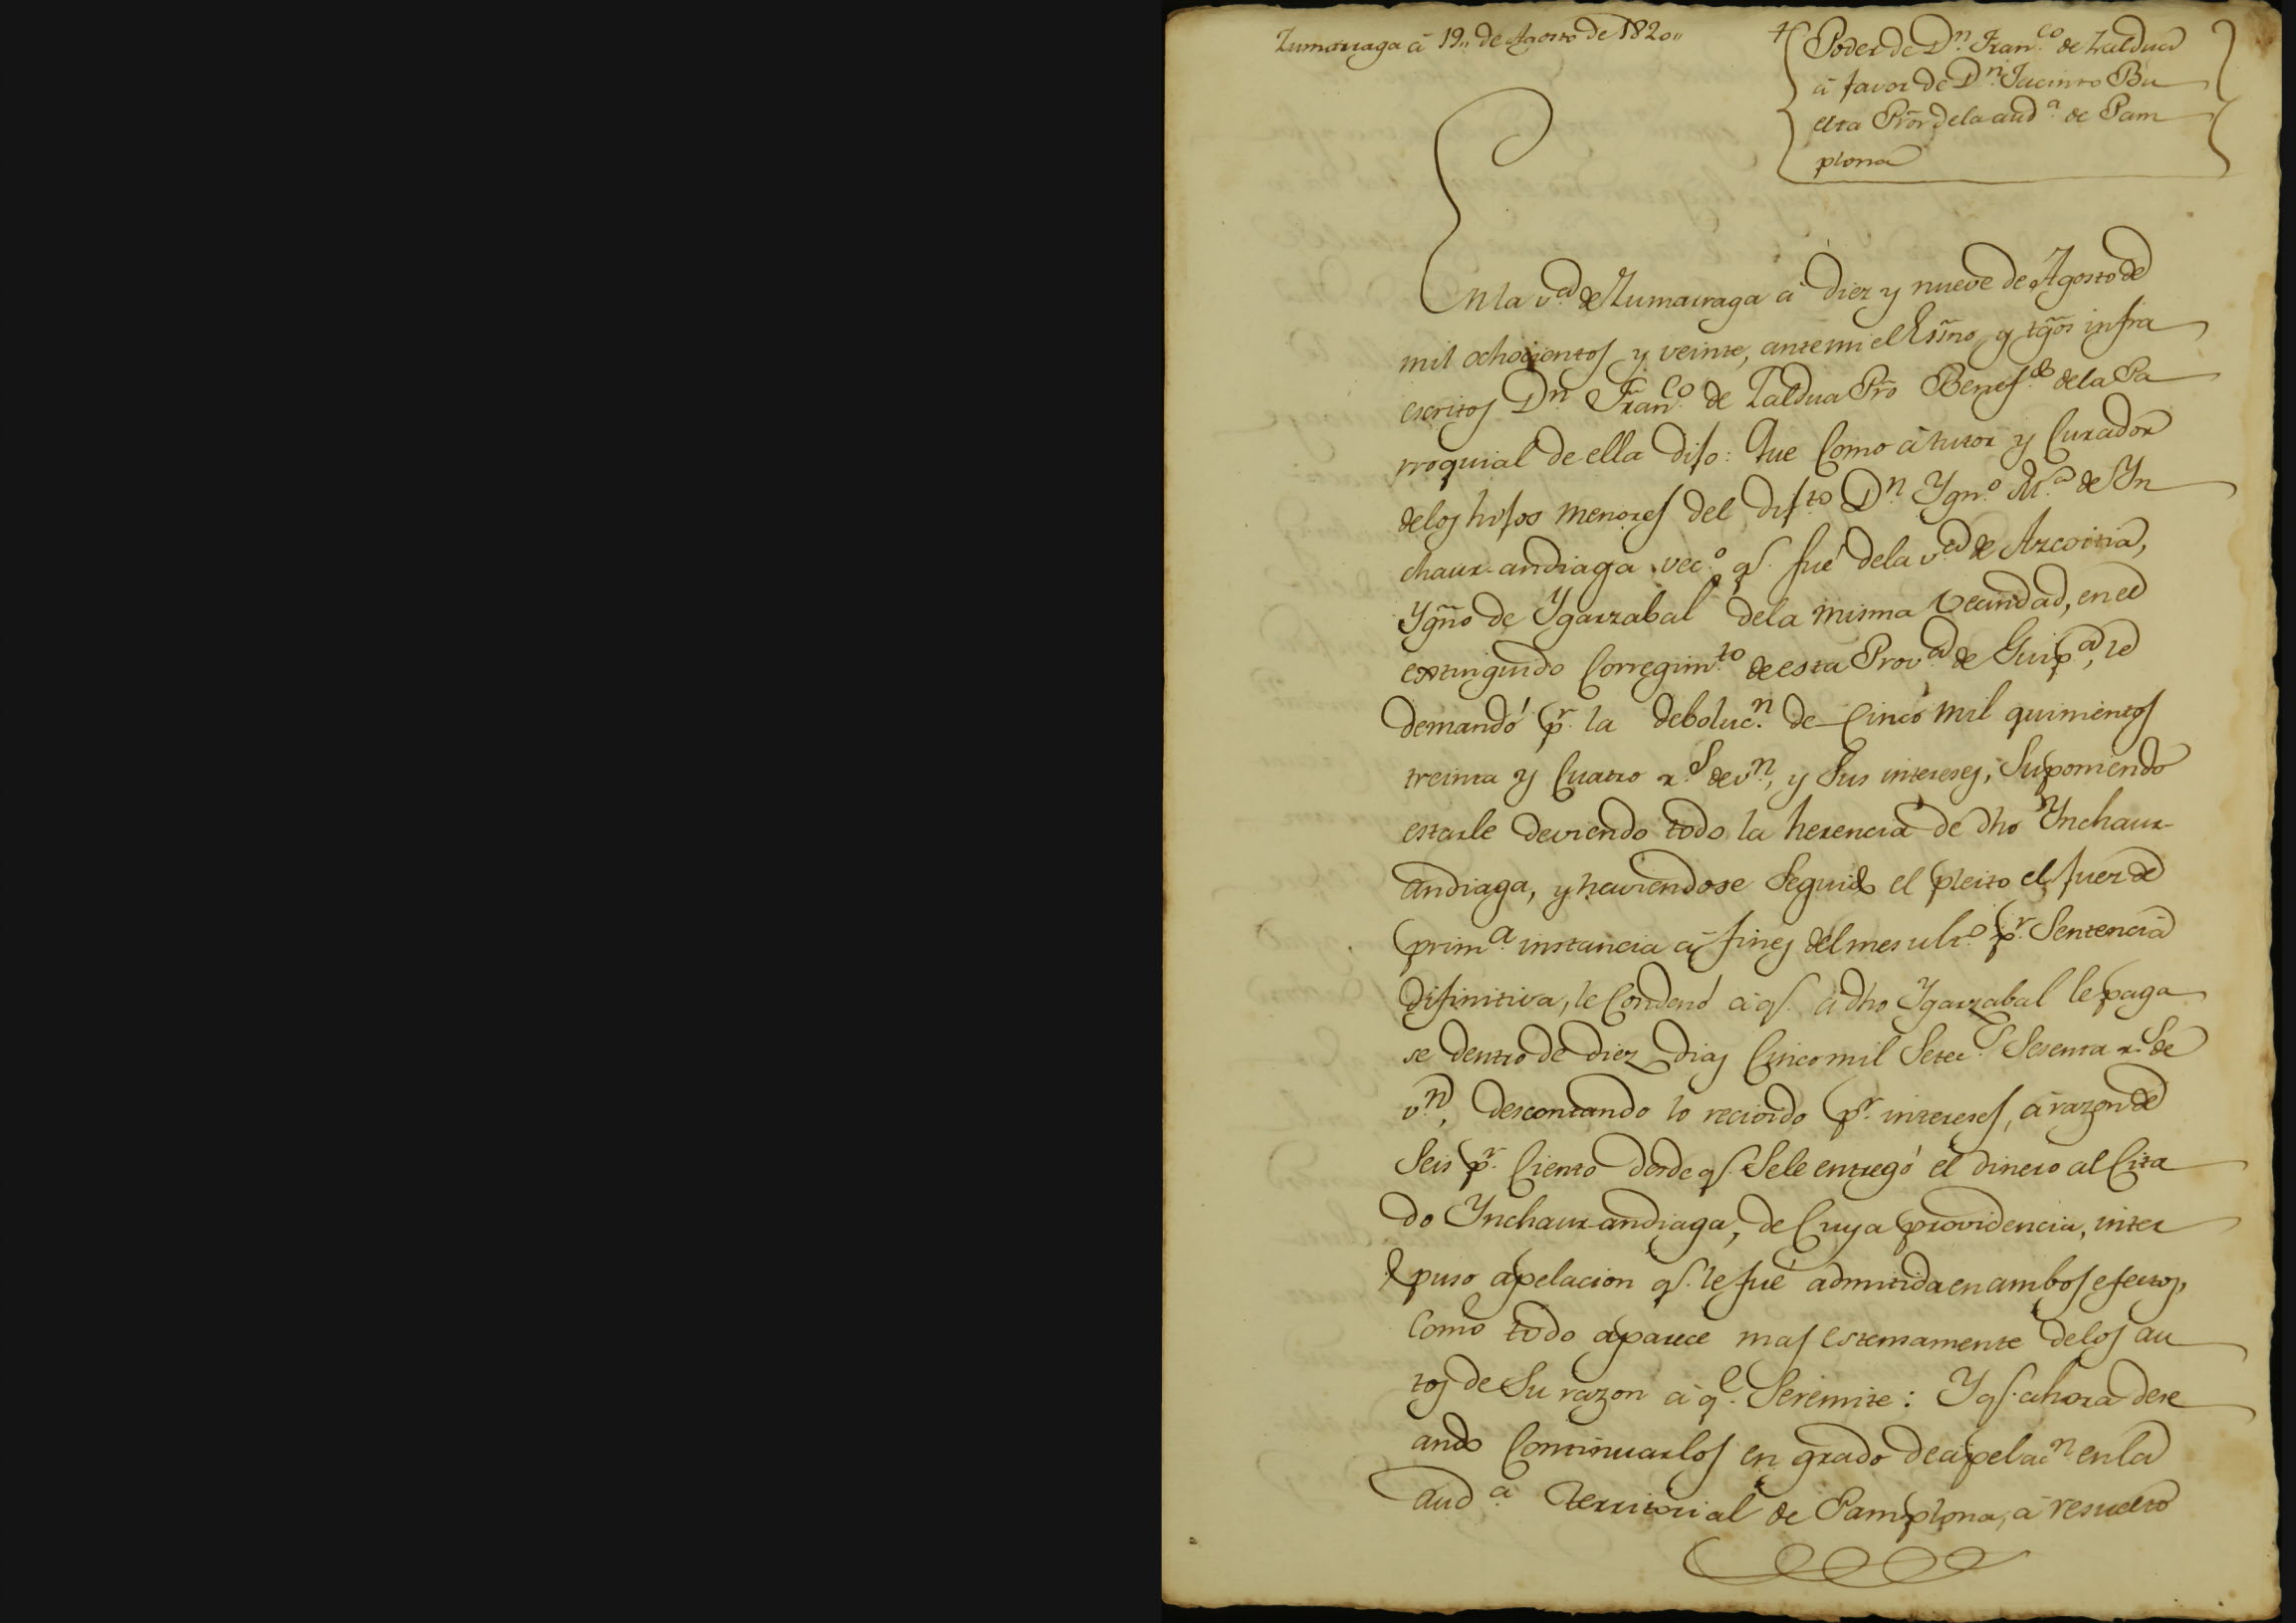 Zumarraga á 19,, de Agosto de 1820,,
Poder de Dn. Franco. de Zaldua
á favor de Dn. Jacinto Bu
elta Pror̃ dela auda. de Pam
plona
En la va. de Zumarraga á diez y nueve de Agosto de
mil ochocientos y veinte, ante mi el Esño, y tgõs infra
escritos Dn. Franco. de Zaldua Pro̅ Benefdo. dela Pa
rroquial de ella dijo: Que Como á tutor y Curador
delos hijos menores del difto. Dn. Ygno. Ma. de Yn
chaur-andiaga veco. q. fué dela va. de Azcoitia,
Ygño de Ygarzabal dela misma vecindad, en el
extinguido Corregimto. de esta Prova. de Guipa., le
demandó pr. la debolucn. de Cinco mil quinientos
treinta y Cuatro rs. de vn., y Sus intereses, Suponiendo
estarle deviendo todo la herencia de dho Ynchaur-
andiaga, y haviendose Seguido el pleito el Juez de
prima. instancia á fines del mes ulto. pr. Sentencia
difinitiva, le Condenó á q. á dho Ygarzabal le paga
se dentro de diez dias Cinco mil Setecs. Sesenta rs. de
vn., descontando lo recivido pr. intereses, á razon de
Seis pr. Ciento desde q. Sele entregó el dinero al Cita
do Ynchaur-andiaga, de Cuya providencia, inter
puso apelacion q. le fué admitida en ambos efectos,
Como todo aparece mas estensamente delos au
tos de Su razon á qe. Seremite: Y q. ahora dese
ando Continuarlos en grado de apelacn. en la
auda. territorial de Pamplona, á resuelto